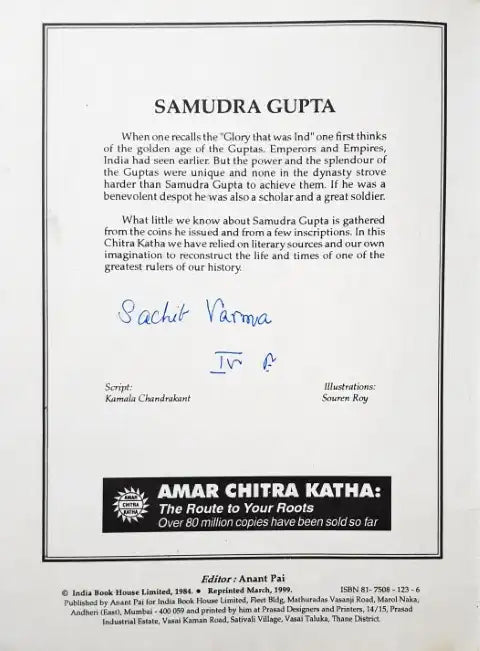 SAMUDRA GUPTA
When one recalls the "Glory that was Ind" one first thinks
of the golden age of the Guptas. Emperors and Empires,
India had seen earlier. But the power and the splendour of
the Guptas were unique and none in the dynasty strove
harder than Samudra Gupta to achieve them. If he was a
benevolent despot he was also a scholar and a great soldier.
What little we know about Samudra Gupta is gathered
from the coins he issued and from a few inscriptions. In this
Chitra Katha we have relied on literary sources and our own
imagination to reconstruct the life and times of one of the
greatest rulers of our history.
Sachit Varma
IV A
Script:
Kamala Chandrakant
Illustrations:
Souren Roy
AMAR
CHITRA
KATHA
AMAR CHITRA KATHA:
The Route to Your Roots
Over 80 million copies have been sold so far
Editor : Anant Pai
© India Book House Limited, 1984. ● Reprinted March, 1999. ISBN 81- 7508 - 123 - 6
Published by Anant Pai for India Book House Limited, Fleet Bldg, Mathuradas Vasanji Road, Marol Naka,
Andheri (East), Mumbai - 400 059 and printed by him at Prasad Designers and Printers, 14/15, Prasad
Industrial Estate, Vasai Kaman Road, Sativali Village, Vasai Taluka, Thane District.